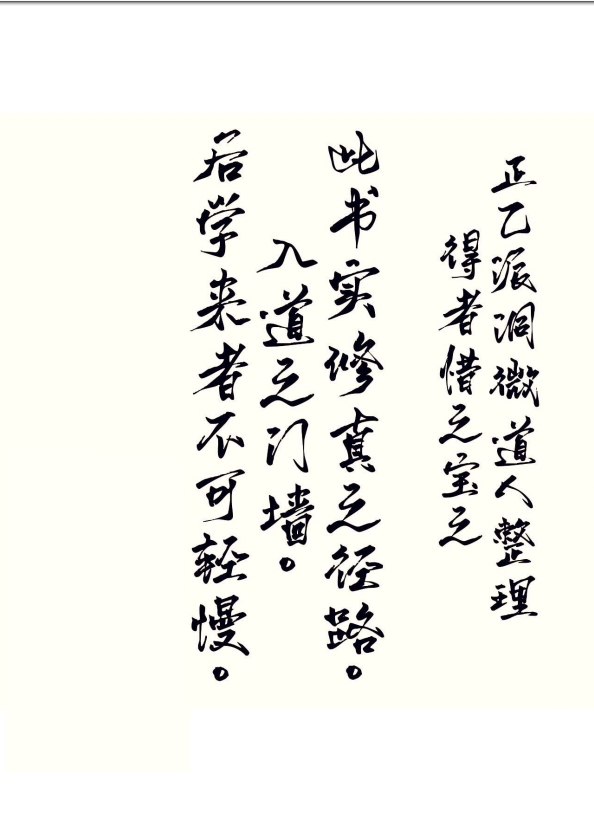 正乙派洞微道人整理
得者惜之宝之
此书实修真之径路。
入道之门墙。
后学来者不可轻慢。